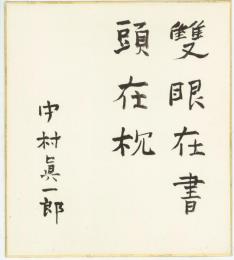 雙眼在書
頭在枕
中村眞一郎